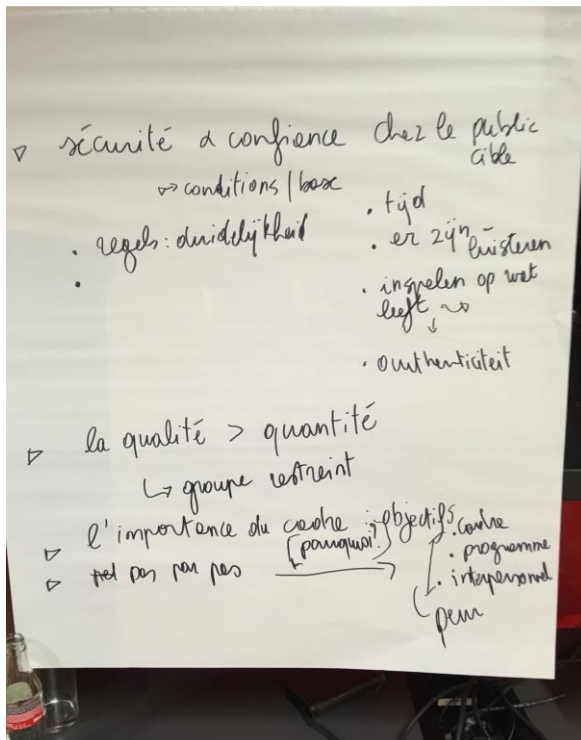 ▷ sécurité & confiance chez le public cible
↪ conditions / base
• regels: duidelijkheid
•
• tijd
• er zijn luisteren
• inspelen op wat
leeft
• authenticiteit
▷ la qualité > quantité
↳ groupe restreint
▷ l'importance du cadre : objectifs
[pourquoi?]
▷ pas par pas
• cadre
• programme
• interpersonnel
peur